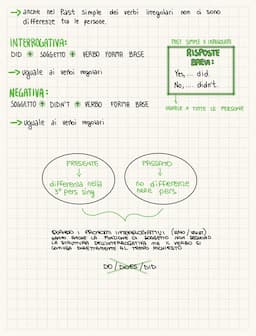 → anche nel Past simple dei verbi irregolari non ci sono
differenze tra le persone.
INTERROGATIVA:
DID + SOGGETTO + VERBO FORMA BASE
→ uguale ai verbi regolari
NEGATIVA:
SOGGETTO + DIDN'T + VERBO FORMA BASE
→ uguale ai verbi regolari
PAST SIMPLE
RISPOSTE
BREVI:
Yes, ... did.
No, ... didn't.
UGUALE A TUTTE LE PERSONE
PRESENTE
↓
differenza nella
3ª pers sing
PASSATO
↓
no differenze
nelle pers.
QUANDO I PRONOMI INTERROGATIVI (WHO / WHAT)
HANNO ANCHE LA FUNZIONE DI SOGGETTO NON SEGUONO
LA STRUTTURA DELL'INTERROGATIVA MA IL VERBO SI
CONIUGA DIRETTAMENTE AL TEMPO RICHIESTO
DO / DOES / DID